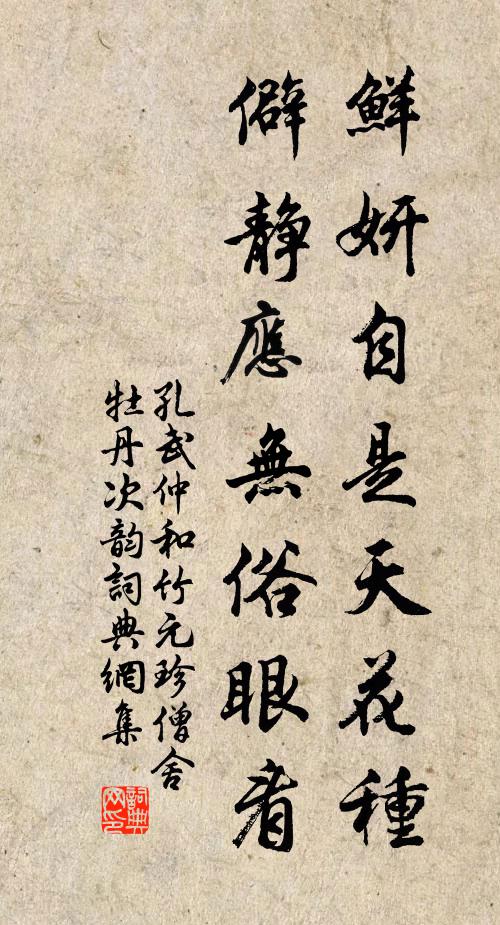 鮮妍自是天花種
僻靜應無俗眼看
孔武仲和竹元珍僧舍
牡丹次韵詞典網集
詞典网印